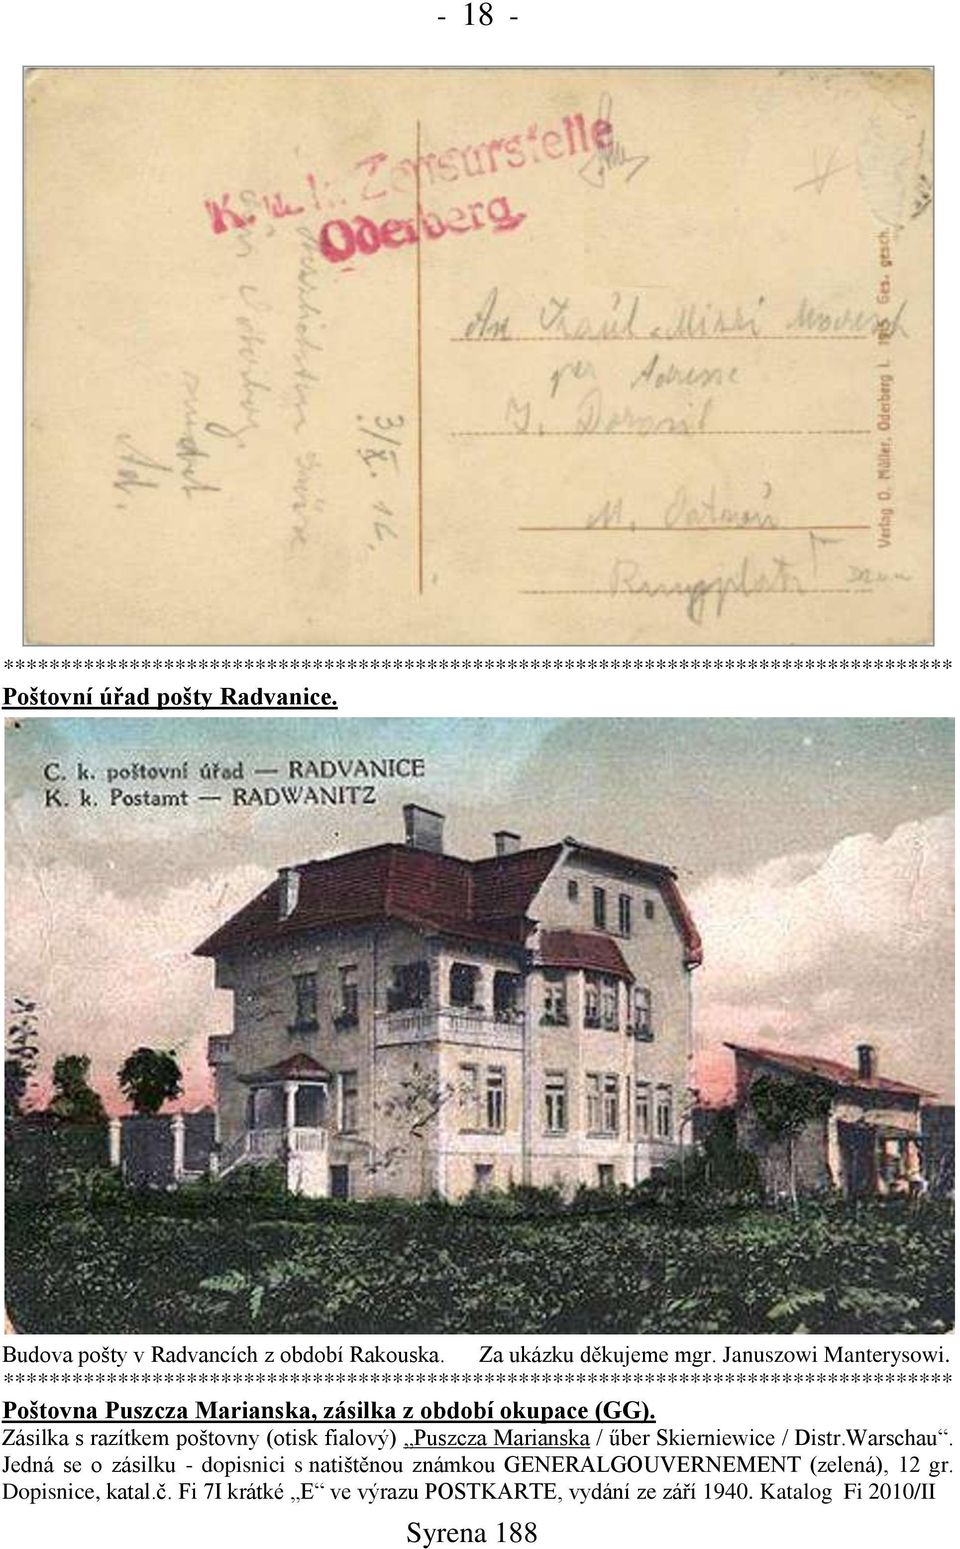 - 18 -
K. u. k. Zensurstelle
Oderberg.
An
per Adresse
3/X. 16.
Ringplatz
Verlag O. Müller, Oderberg i. 1915 Ges. gesch.
********************************************************************************************
Poštovní úřad pošty Radvanice.
C. k. poštovní úřad — RADVANICE
K. k. Postamt — RADWANITZ
Budova pošty v Radvancích z období Rakouska. Za ukázku děkujeme mgr. Januszowi Manterysowi.
********************************************************************************************
Poštovna Puszcza Marianska, zásilka z období okupace (GG).
Zásilka s razítkem poštovny (otisk fialový) „Puszcza Marianska / űber Skierniewice / Distr.Warschau“.
Jedná se o zásilku - dopisnici s natištěnou známkou GENERALGOUVERNEMENT (zelená), 12 gr.
Dopisnice, katal.č. Fi 7I krátké „E“ ve výrazu POSTKARTE, vydání ze září 1940. Katalog Fi 2010/II
Syrena 188